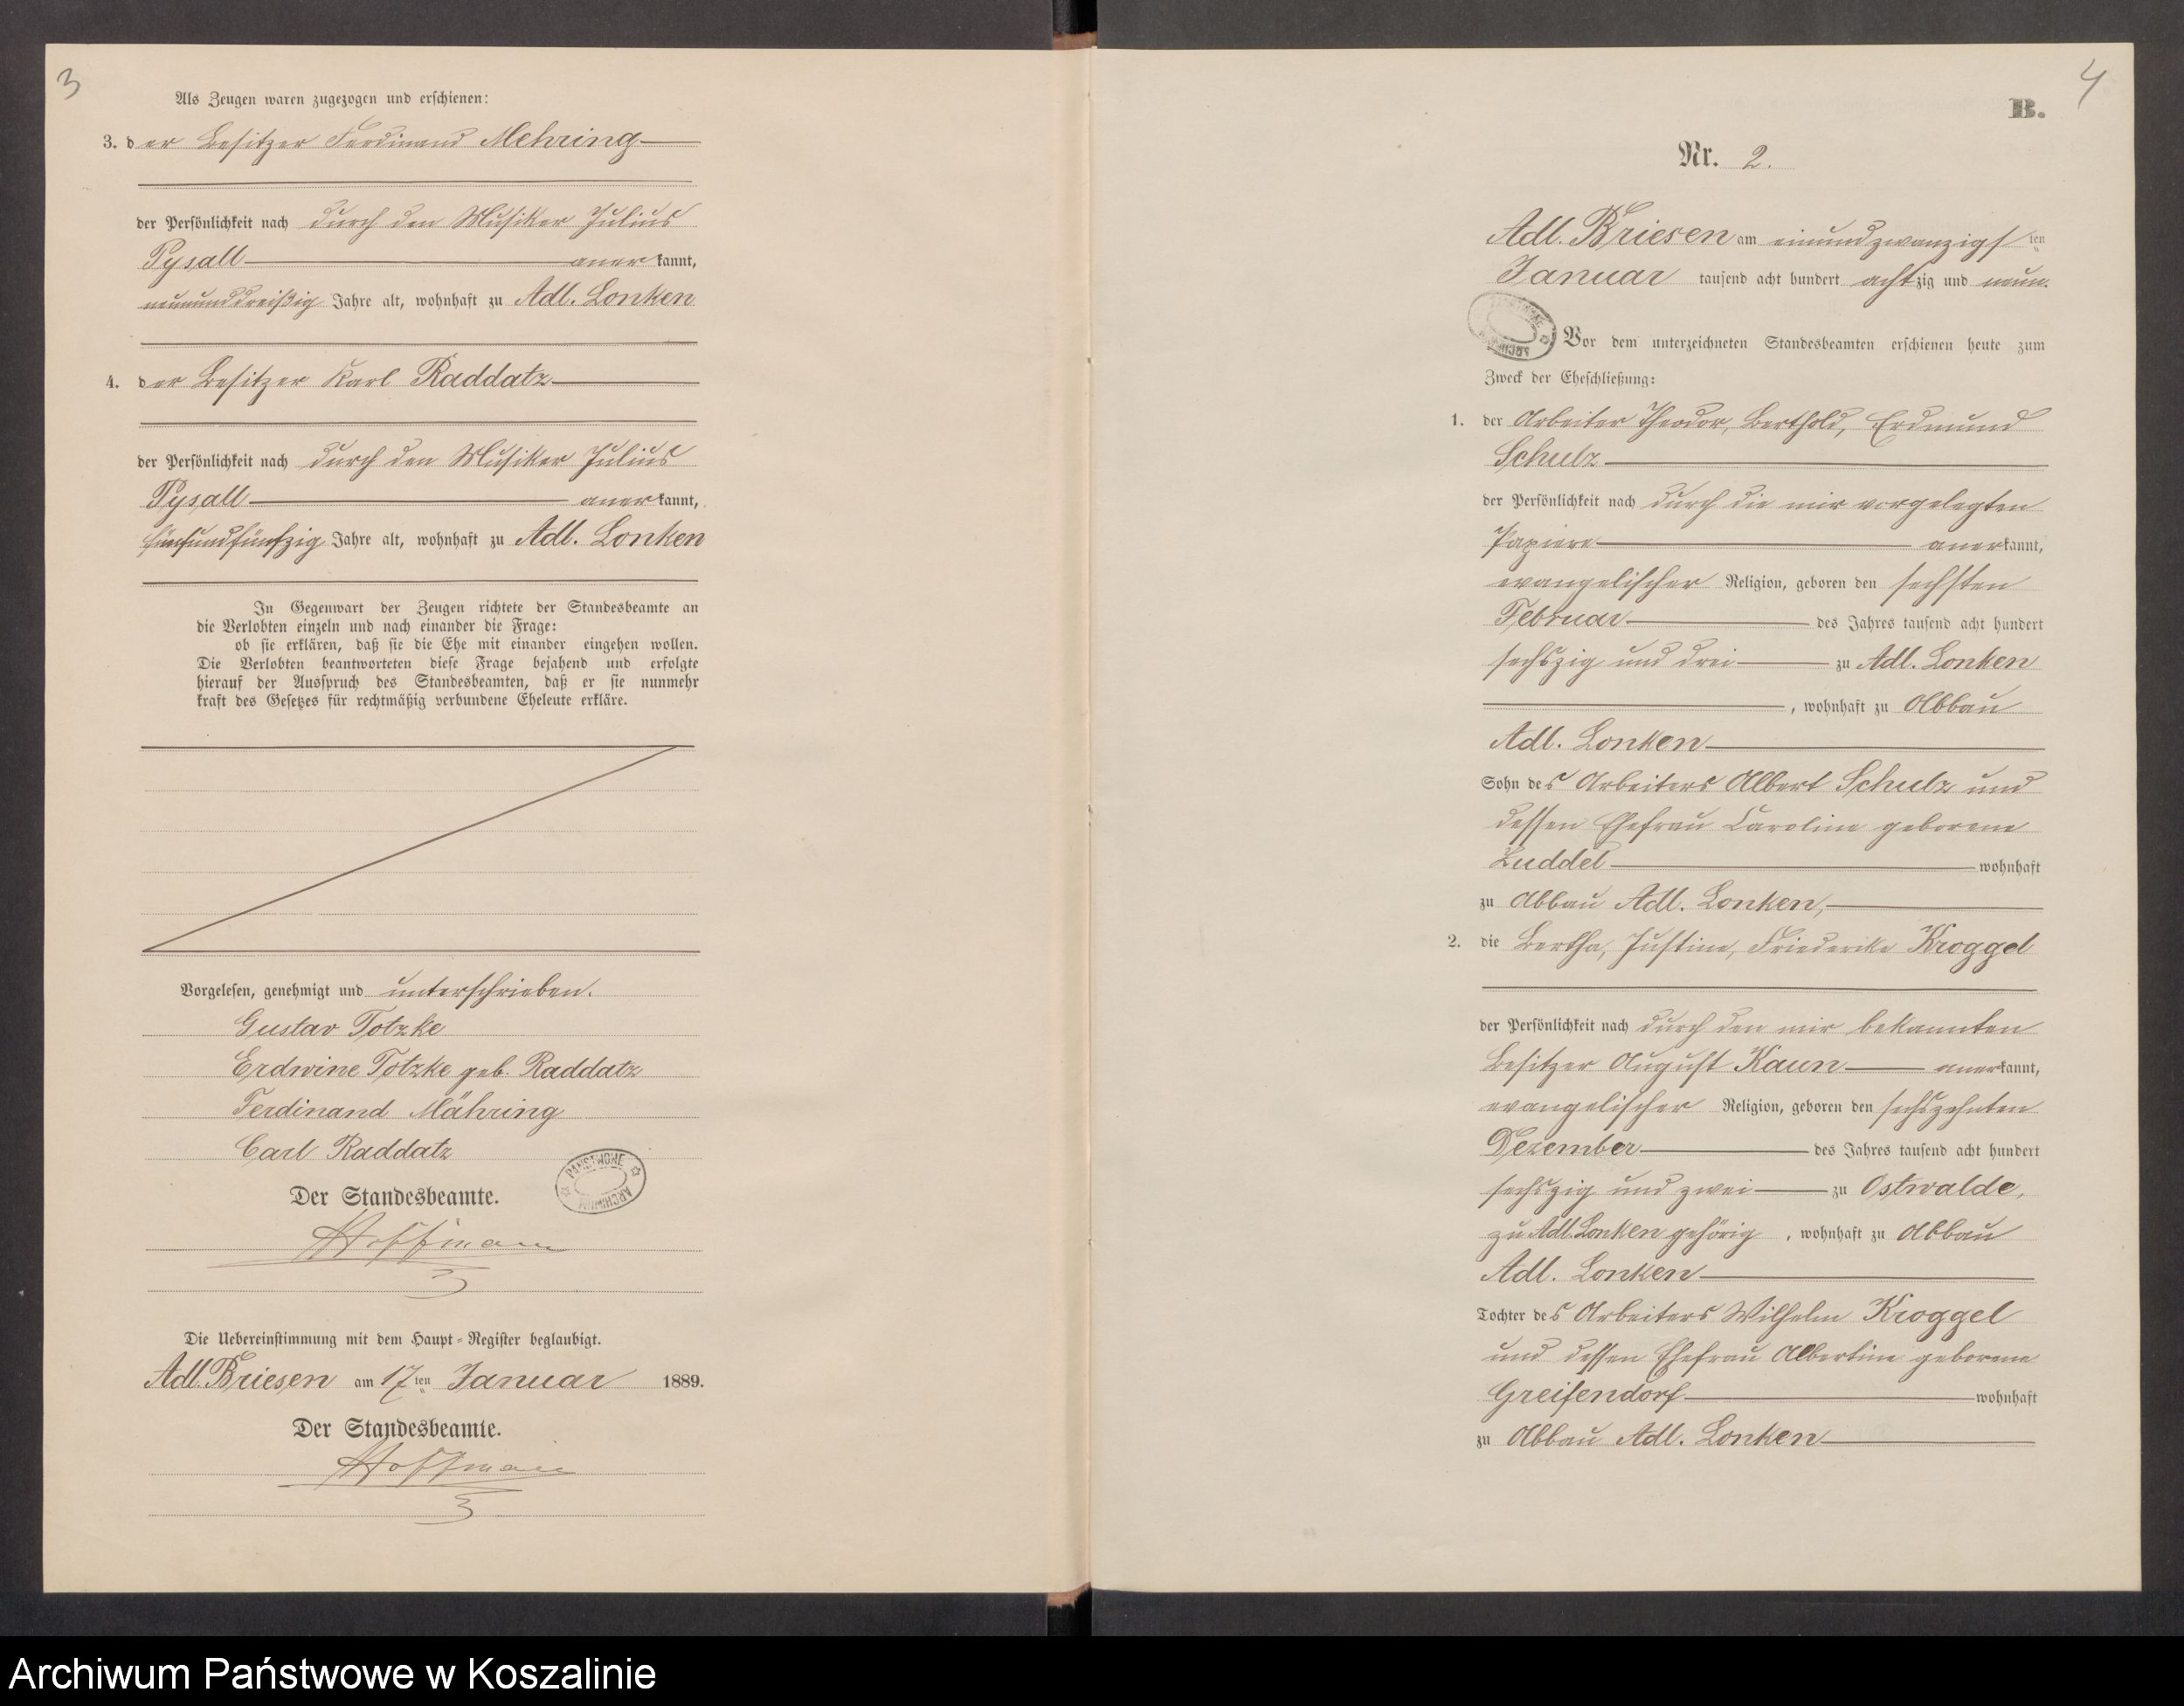 3
Als Zeugen waren zugezogen und erschienen:
3. der Besitzer Ferdinand Mehring
der Persönlichkeit nach durch den Musiker Julius
Pysall anerkannt,
neununddreißig Jahre alt, wohnhaft zu Adl. Lonken
4. der Besitzer Karl Raddatz
der Persönlichkeit nach durch den Musiker Julius
Pysall anerkannt,
fünfundfünfzig Jahre alt, wohnhaft zu Adl. Lonken
In Gegenwart der Zeugen richtete der Standesbeamte an
die Verlobten einzeln und nach einander die Frage:
ob sie erklären, daß sie die Ehe mit einander eingehen wollen.
Die Verlobten beantworteten diese Frage bejahend und erfolgte
hierauf der Ausspruch des Standesbeamten, daß er sie nunmehr
kraft des Gesetzes für rechtmäßig verbundene Eheleute erkläre.
Vorgelesen, genehmigt und unterschrieben.
Gustav Totzke
Erdwine Totzke geb. Raddatz
Ferdinand Mähring
Carl Raddatz
PAŃSTWOWE ARCHIWUM
Der Standesbeamte.
Hoffmann
Die Uebereinstimmung mit dem Haupt-Register beglaubigt.
Adl. Briesen am 17ten Januar 1889.
Der Standesbeamte.
Hoffmann
4
B.
Nr. 2.
Adl. Briesen am einundzwanzigsten
Januar tausend acht hundert achtzig und neun.
PAŃSTWOWE ARCHIWUM
Vor dem unterzeichneten Standesbeamten erschienen heute zum
Zweck der Eheschließung:
1. der Arbeiter Theodor, Berthold, Erdmund
Schulz
der Persönlichkeit nach durch die mir vorgelegten
Papiere anerkannt,
evangelischer Religion, geboren den sechsten
Februar des Jahres tausend acht hundert
sechszig und drei zu Adl. Lonken
, wohnhaft zu Abbau
Adl. Lonken
Sohn des Arbeiters Albert Schulz und
dessen Ehefrau Caroline geborene
Zuddel wohnhaft
zu Abbau Adl. Lonken,
2. die Bertha, Justine, Friederike Kroggel
der Persönlichkeit nach durch den mir bekannten
Besitzer August Kaun anerkannt,
evangelischer Religion, geboren den sechszehnten
Dezember des Jahres tausend acht hundert
sechszig und zwei zu Ostwalde,
zu Adl. Lonken gehörig , wohnhaft zu Abbau
Adl. Lonken
Tochter des Arbeiters Wilhelm Kroggel
und dessen Ehefrau Albertine geborene
Greifendorf wohnhaft
zu Abbau Adl. Lonken
Archiwum Państwowe w Koszalinie